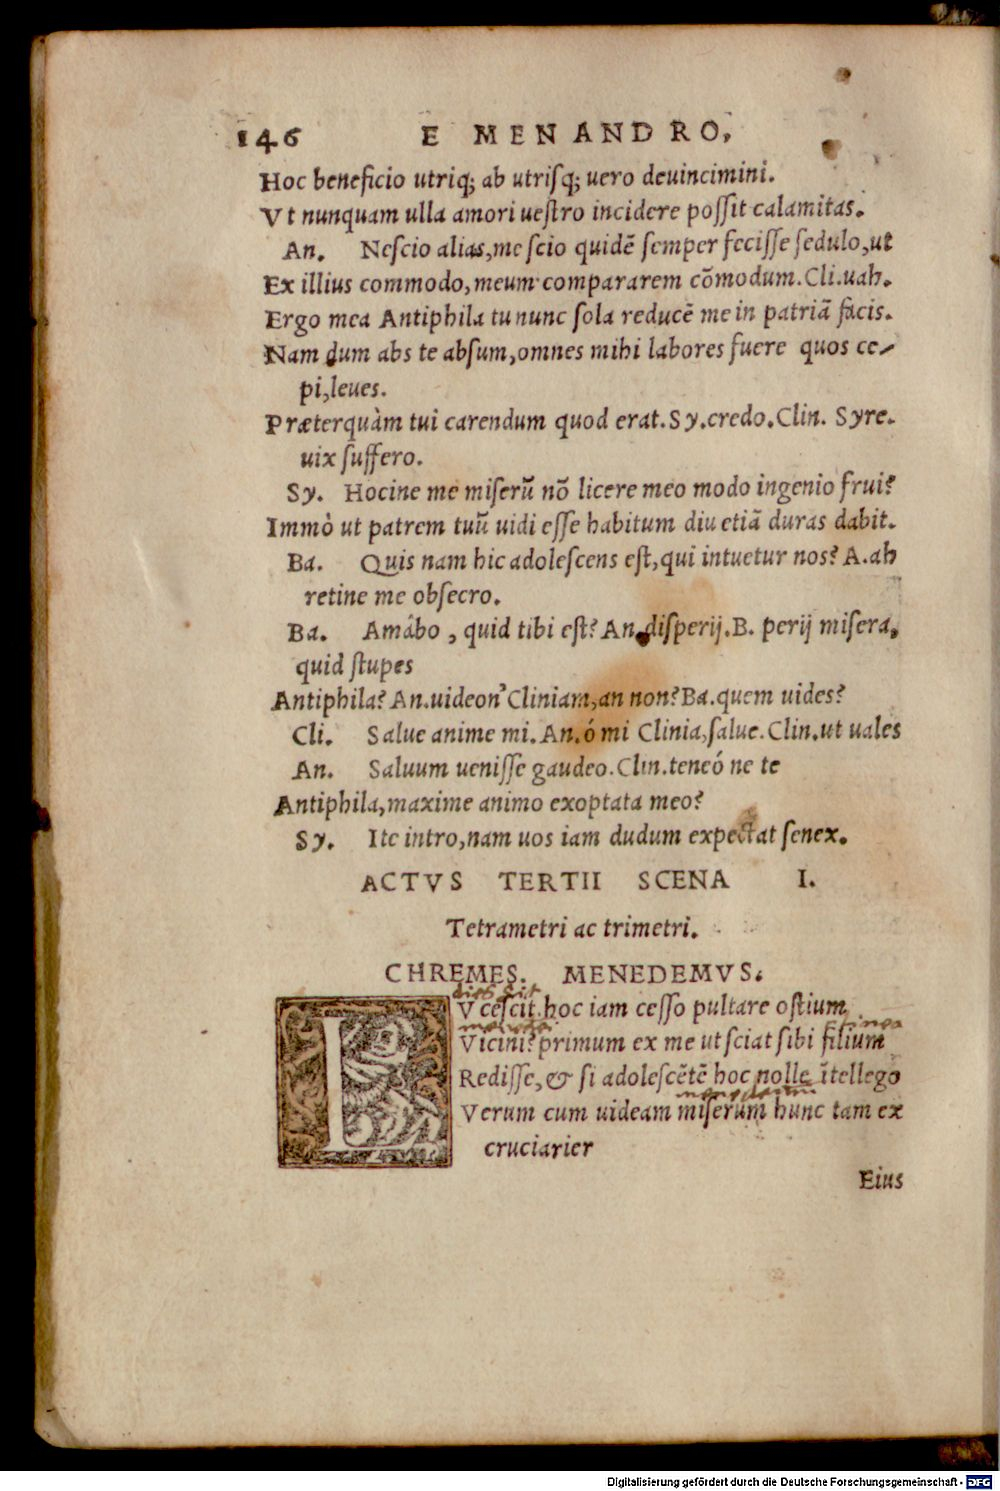 146 E MENANDRO,
Hoc beneficio utriq; ab utrisq; uero deuincimini.
Vt nunquam ulla amori uestro incidere possit calamitas.
An. Nescio alias, me scio quidē semper fecisse sedulo, ut
Ex illius commodo, meum compararem cōmodum. Cli. uah.
Ergo mea Antiphila tu nunc sola reducē me in patriā facis.
Nam dum abs te absum, omnes mihi labores fuere quos ce-
pi, leues.
Præterquàm tui carendum quod erat. Sy. credo. Clin. Syre.
uix suffero.
Sy. Hocine me miserū nō licere meo modo ingenio frui?
Immò ut patrem tuū uidi esse habitum diu etiā duras dabit.
Ba. Quis nam hic adolescens est, qui intuetur nos? A. ah
retine me obsecro.
Ba. Amábo, quid tibi est? An. disperij. B. perij misera,
quid stupes
Antiphila? An. uideon' Cliniam, an non? Ba. quem uides?
Cli. Salue anime mi. An. ó mi Clinia, salue. Clin. ut uales
An. Saluum uenisse gaudeo. Clin. teneó ne te
Antiphila, maxime animo exoptata meo?
Sy. Ite intro, nam uos iam dudum expectat senex.
ACTVS TERTII SCENA I.
Tetrametri ac trimetri.
CHREMES. MENEDEMVS.
LVcescit hoc iam cesso pultare ostium
Vicini? primum ex me ut sciat sibi filium
Redisse, & si adolescētē hoc nolle ītellego
Verum cum uideam miserum hunc tam ex
cruciarier
Eius
Digitalisierung gefördert durch die Deutsche Forschungsgemeinschaft - DFG